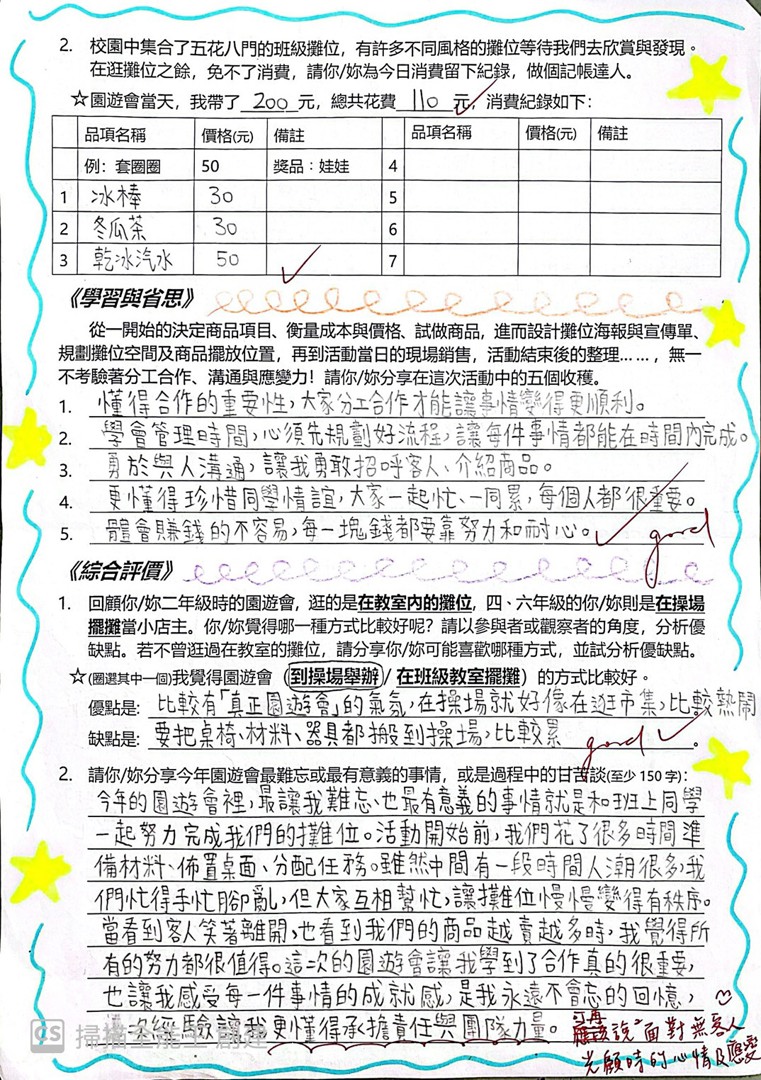 2. 校園中集合了五花八門的班級攤位，有許多不同風格的攤位等待我們去欣賞與發現。
在逛攤位之餘，免不了消費，請你/妳為今日消費留下紀錄，做個記帳達人。
☆園遊會當天，我帶了 200 元，總共花費 110 元，消費紀錄如下：
品項名稱 價格(元) 備註 品項名稱 價格(元) 備註
例：套圈圈 50 獎品：娃娃 4
1 冰棒 30 5
2 冬瓜茶 30 6
3 乾冰汽水 50 7
《學習與省思》
從一開始的決定商品項目、衡量成本與價格、試做商品，進而設計攤位海報與宣傳單、
規劃攤位空間及商品擺放位置，再到活動當日的現場銷售，活動結束後的整理……，無一
不考驗著分工合作、溝通與應變力！請你/妳分享在這次活動中的五個收穫。
1. 懂得合作的重要性，大家分工合作才能讓事情變得更順利。
2. 學會管理時間，必須先規劃好流程，讓每件事情都能在時間內完成。
3. 勇於與人溝通，讓我勇敢招呼客人、介紹商品。
4. 更懂得珍惜同學情誼，大家一起忙、一同累，每個人都很重要。
5. 體會賺錢的不容易，每一塊錢都要靠努力和耐心。 good
《綜合評價》
1. 回顧你/妳二年級時的園遊會，逛的是在教室內的攤位，四、六年級的你/妳則是在操場
擺攤當小店主。你/妳覺得哪一種方式比較好呢？請以參與者或觀察者的角度，分析優
缺點。若不曾逛過在教室的攤位，請分享你/妳可能喜歡哪種方式，並試分析優缺點。
☆(圈選其中一個)我覺得園遊會（到操場舉辦 / 在班級教室擺攤）的方式比較好。
優點是：比較有「真正園遊會」的氣氛，在操場就好像在逛市集，比較熱鬧
缺點是：要把桌椅、材料、器具都搬到操場，比較累 good 。
2. 請你/妳分享今年園遊會最難忘或最有意義的事情，或是過程中的甘苦談(至少 150 字)：
今年的園遊會裡，最讓我難忘、也最有意義的事情就是和班上同學
一起努力完成我們的攤位。活動開始前，我們花了很多時間準
備材料、佈置桌面、分配任務。雖然中間有一段時間人潮很多，我
們忙得手忙腳亂，但大家互相幫忙，讓攤位慢慢變得有秩序。
當看到客人笑著離開，也看到我們的商品越賣越多時，我覺得所
有的努力都很值得。這次的園遊會讓我學到了合作真的很重要，
也讓我感受每一件事情的成就感，是我永遠不會忘的回憶，
次經驗讓我更懂得承擔責任與團隊力量。
可再說"面對無客人
光顧時的心情及應變
CS 掃描全能王 創建